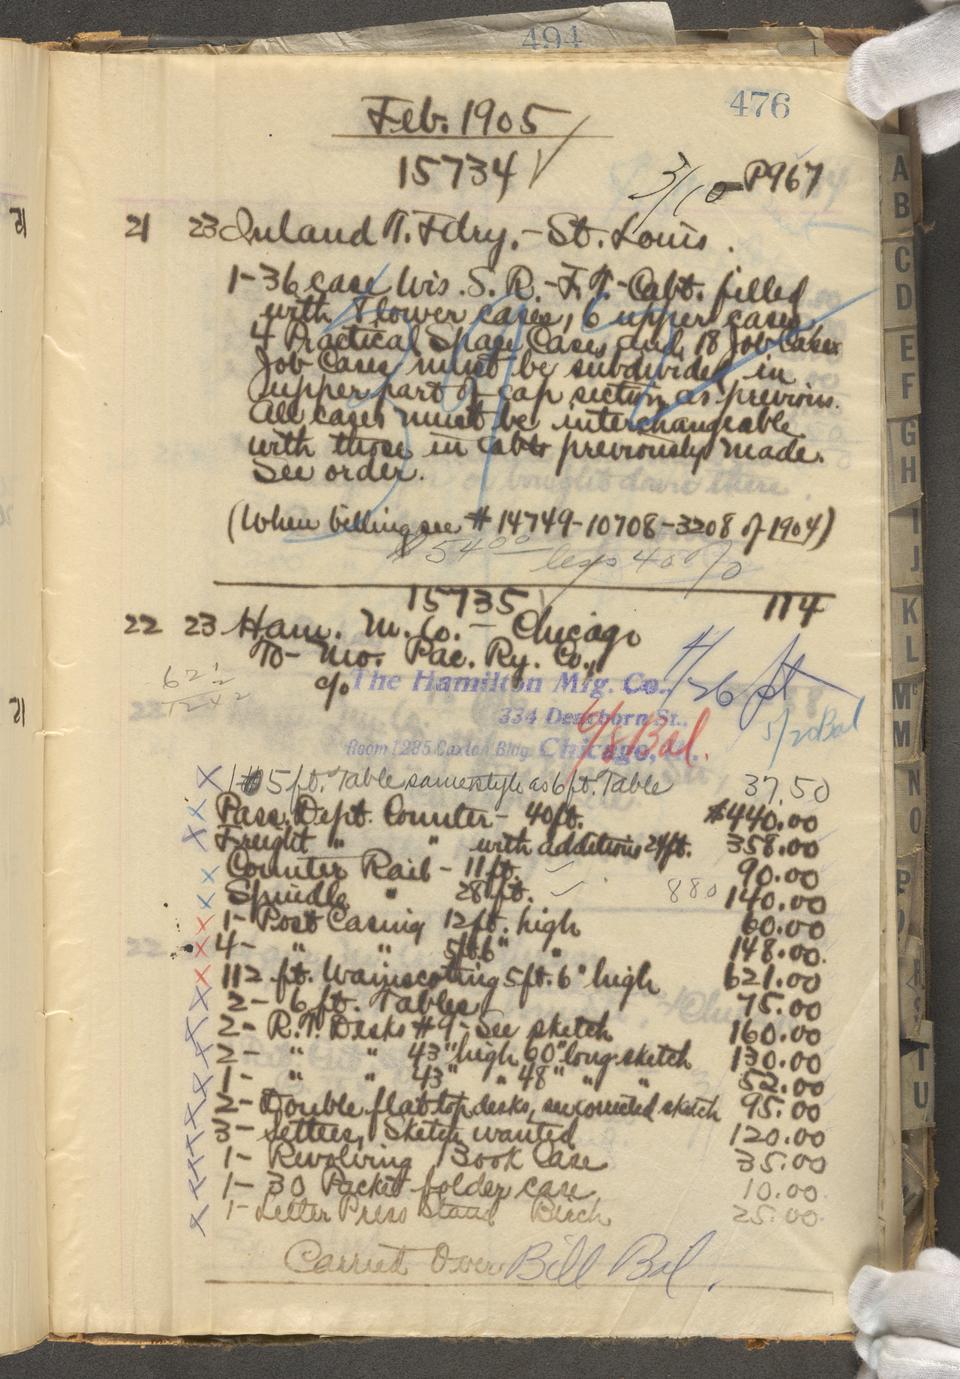 494
476
Feb. 1905
15734 √
3/10 - P967
21 23 Inland T. Fdry. - St. Louis.
1-36 case Wis. S. R. - F. T. - Cabt. filled
with 8 lower cases, 6 upper cases,
4 Practical Space Cases and 18 Job Cases
Job Cases must be subdivided in
upper part of cap section as previous.
All cases must be interchangeable
with those in cabts previously made.
See order.
(When billing see # 14749-10708-3208 of 1904)
$54.00 less 40%
15735 √ 114
22 23 Ham. M. Co. - Chicago
To- Mo. Pac. Ry. Co.,
c/o The Hamilton Mfg. Co.,
334 Dearborn St.,
Room 1285 Caxton Bldg. Chicago, Ill.
4/26 ft
6/8 Bal.
5/20 Bal
62½
1- 5 ft. Table same style as 6 ft. Table 37.50
Pass. Dept. Counter - 40 ft. $440.00
Freight " " with additions 24 ft. 358.00
Counter Rail - 11 ft. 90.00
Spindle " 28 ft. 880 140.00
1- Post Casing 12 ft. high 60.00
4- " " 5ft 6" " 148.00
112 ft. Wainscotting 5 ft. 6" high 621.00
2- 6 ft. Tables 75.00
2- R.T. Desks #9 - See sketch 160.00
2- " " 43" high 60" long sketch 130.00
1- " " 43" " 48" " " 52.00
2- Double flat top desks, see corrected sketch 95.00
3- Settees, Sketch wanted 120.00
1- Revolving Book Case 35.00
1- 30 Packet folder case 10.00
1- Letter Press Stand Birch 25.00
Carried Over Bill Bal.
A
B
C
D
E
F
G
H
I
J
K
L
Mc
M
N
O
P
T
U